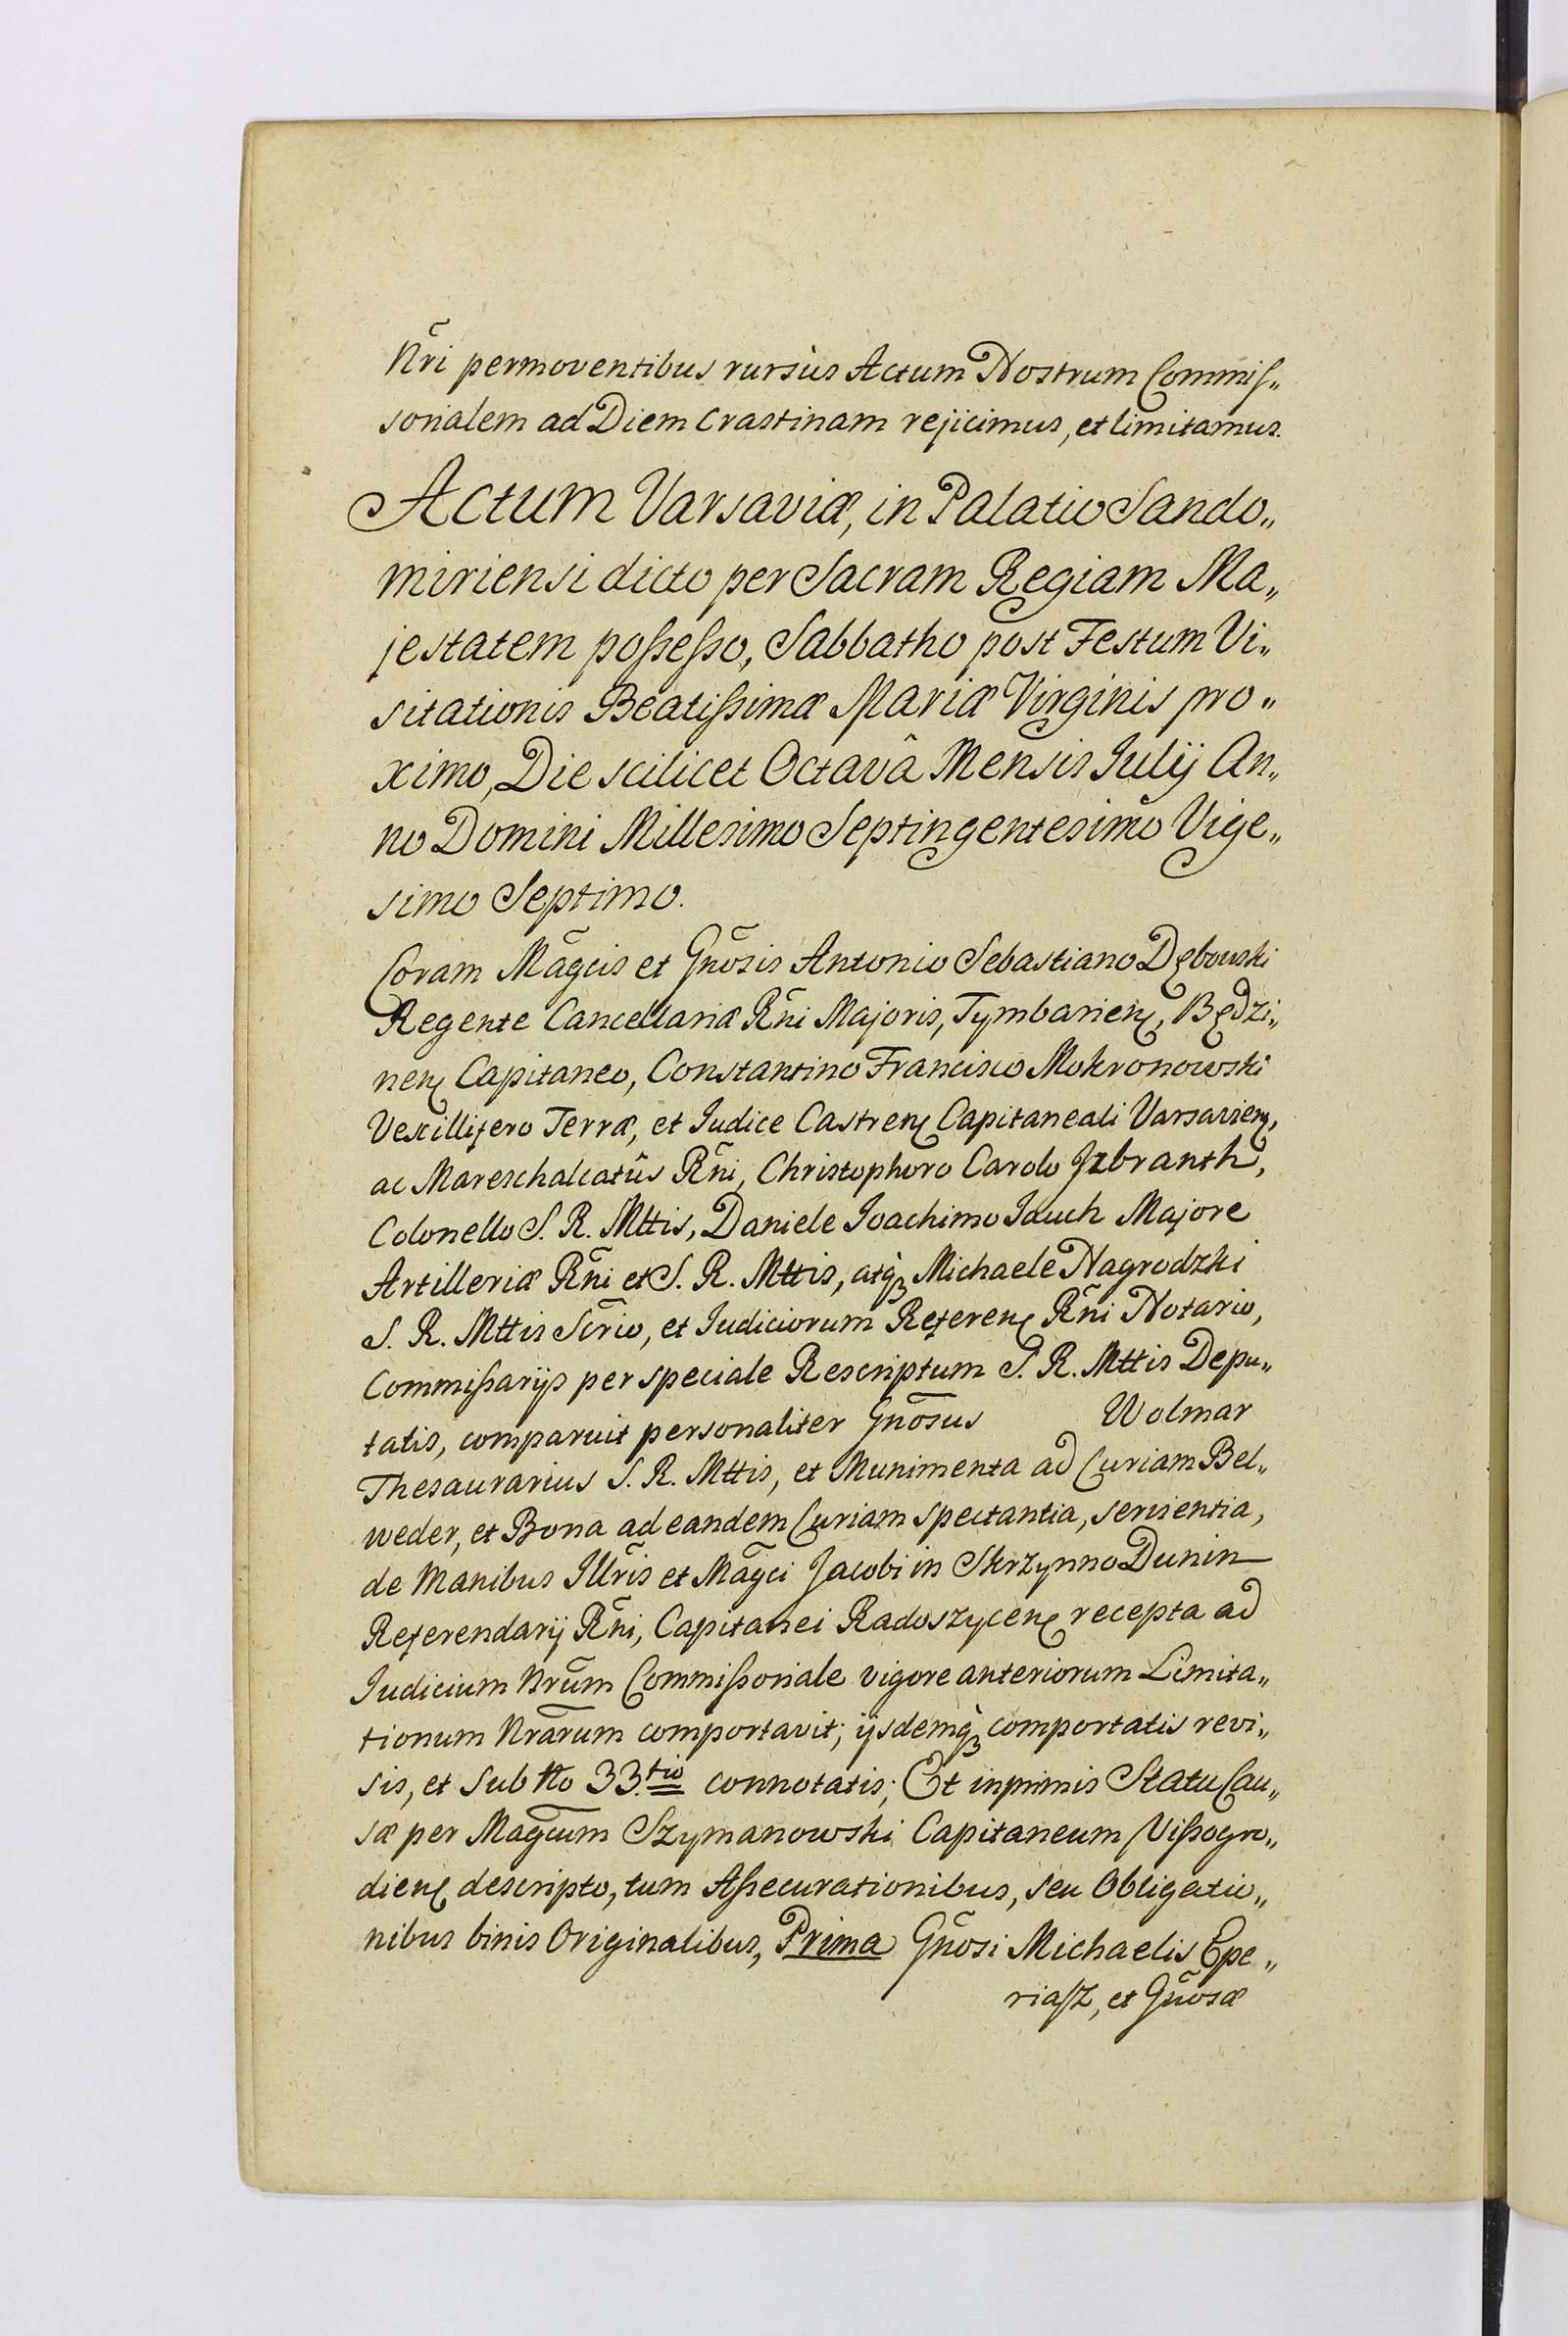 Nr̃i permoventibus rursùs Actum Nostrum Commiſ„
sorialem ad Diem Crastinam rejicimus, et limitamus.
Actum Varsaviæ, in Palatio Sando„
miriensi dicto per Sacram Regiam Ma„
jestatem poſseſso, Sabbatho post Festum Vi„
sitationis Beatiſsimæ Mariæ Virginis pro„
ximo, Die scilicet Octavâ Mensis Julij An„
no Domini Millesimo Septingentesimo Vige„
simo Septimo.
Coram Mãgcis et Gnõsis Antonio Sebastiano Dębowski
Regente Cancellariæ Rñi Majoris, Tymbarienę, Będzi„
nenę Capitaneo, Constantino Francisco Mokronowski
Vexillifero Terræ, et Judice Castrenę Capitaneali Varsavienę,
ac Mareschalcatûs Rñi, Christophoro Carolo Jzbranth,
Colonello S. R. Mttis, Daniele Joachimo Jauch Majore
Artilleriæ Rñi et S. R. Mttis, atq̀ꝫ Michaele Nagrodzki
S. R. Mttis Scr̃io, et Judiciorum Referenę Rñi Notario,
Commiſsarijs per speciale Rescriptum S. R. Mttis Depu„
tatis, comparuit personaliter Gnõsus Wolmar
Thesaurarius S. R. Mttis, et Munimenta ad Curiam Bel„
weder, et Bona ad eandem Curiam spectantia, servientia,
de Manibus Jllr̃is et Mãgci Jacobi in Skrzynno Dunin
Referendarij Rñi, Capitanei Radoszycenę recepta ad
Judicium Nrũm Commiſsoriale vigore anteriorum Limita„
tionum Nrãrum comportavit; ijsdemq̀ꝫ comportatis revi„
sis, et sub No 33.tio connotatis; Et inprimis Statu Cau„
sæ per Magc̃um Szymanowski Capitaneum Viſsogro„
dienę descripto, tum Aſsecurationibus, seu Obligatio„
nibus binis Originalibus, Prima Gnõsi Michaelis Epe„
riaſz, et Gnõsæ